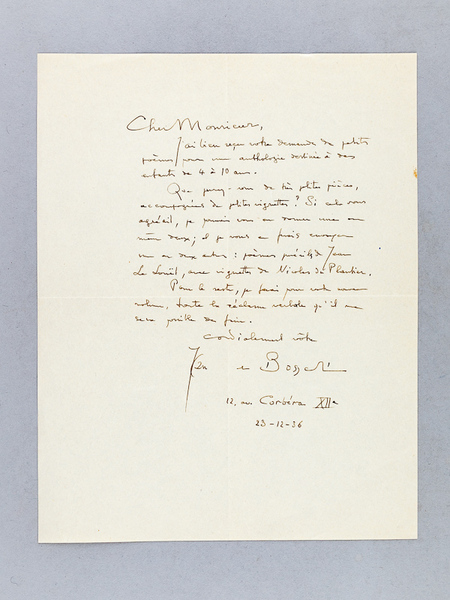 Cher Monsieur,
J'ai bien reçu votre demande de petits
poèmes pour une anthologie destinée à des
enfants de 4 à 10 ans.
Que pensez-vous de très petites pièces,
accompagnées de petites vignettes? Si cela vous
agréait, je pourrais vous en donner une ou
même deux; et je vous en ferais envoyer
une ou deux autres: poèmes de Jean
Le Louët, avec vignette de Nicolas de
Pour le reste, je ferai pour votre
volume, toute la réclame verbale qu'il me
sera possible de faire.
Cordialement vôtre
Jean de Bosschère
12, rue Corbéra XIIe
23-12-36